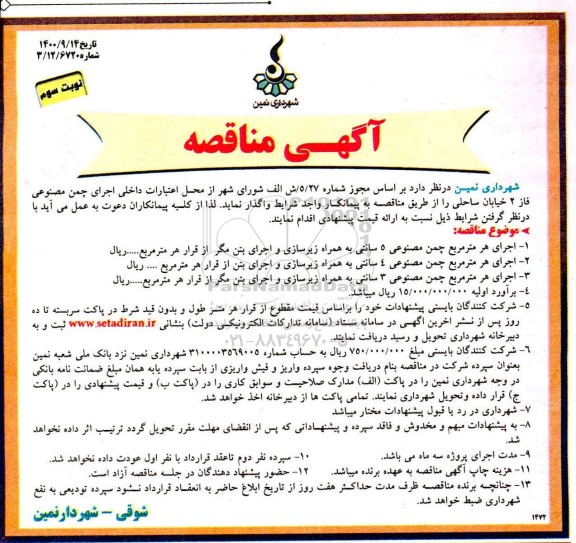 تاریخ ۱۴۰۰/۹/۱۴
شماره ۳/۱۲/۶۷۲۰
نوبت سوم
شهرداری نمین
آگهی مناقصه
شهرداری نمین درنظر دارد بر اساس مجوز شماره ۵/۲۷/ش الف شورای شهر از محل اعتبارات داخلی اجرای چمن مصنوعی
فاز ۲ خیابان ساحلی را از طریق مناقصه به پیمانکار واجد شرایط واگذار نماید. لذا از کلیه پیمانکاران دعوت به عمل می آید با
درنظر گرفتن شرایط ذیل نسبت به ارائه قیمت پیشنهادی اقدام نمایند.
موضوع مناقصه:
۱- اجرای هر مترمربع چمن مصنوعی ۵ سانتی به همراه زیرسازی و اجرای بتن مگر از قرار هر مترمربع.....ریال
۲- اجرای هر مترمربع چمن مصنوعی ۴ سانتی به همراه زیرسازی و اجرای بتن از قرار هر مترمربع .... ریال
۳- اجرای هر مترمربع چمن مصنوعی ۳ سانتی به همراه زیرسازی و اجرای بتن مگر از قرار هر مترمربع.....ریال
۴- برآورد اولیه ۱۵/۰۰۰/۰۰۰/۰۰۰ ریال میباشد.
۵- شرکت کنندگان بایستی پیشنهادات خود را براساس قیمت مقطوع از قرار هر متر طول و بدون قید شرط در پاکت سربسته تا ده
روز پس از نشر اخرین اگهی در سامانه ستاد (سامانه تدارکات الکترونیکی دولت) بنشانی www.setadiran.ir ثبت و به
دبیرخانه شهرداری تحویل و رسید دریافت نمایند.
۶- شرکت کنندگان بایستی مبلغ ۷۵۰/۰۰۰/۰۰۰ ریال به حساب شماره ۳۱۰۰۰۰۳۵۶۹۰۰۵ شهرداری نمین نزد بانک ملی شعبه نمین
بعنوان سپرده شرکت در مناقصه بنام دریافت وجوه سپرده واریز و فیش واریزی از بابت سپرده یابه همان مبلغ ضمانت نامه بانکی
در وجه شهرداری نمین را در پاکت (الف) مدارک صلاحیت و سوابق کاری را در (پاکت ب) و قیمت پیشنهادی را در (پاکت
ج) قرار داده وتحویل شهرداری نمایند. تمامی پاکت ها از دبیرخانه اخذ خواهد شد.
۷- شهرداری در رد یا قبول پیشنهادات مختار میباشد
۸- به پیشنهادات مبهم و مخدوش و فاقد سپرده و پیشنهاداتی که پس از انقضای مهلت مقرر تحویل گردد ترتیب اثر داده نخواهد
شد.
۹- مدت اجرای پروژه سه ماه می باشد. ۱۰- سپرده نفر دوم تاعقد قرارداد با نفر اول عودت داده نخواهد شد.
۱۱- هزینه چاپ آگهی مناقصه به عهده برنده میباشد. ۱۲- حضور پیشنهاد دهندگان در جلسه مناقصه آزاد است.
۱۳- چنانچه برنده مناقصه ظرف مدت حداکثر هفت روز از تاریخ ابلاغ حاضر به انعقاد قرارداد نشود سپرده تودیعی به نفع
شهرداری ضبط خواهد شد.
شوقی - شهردارنمین
۱۴۷۲
ParsNamadData
۰۲۱-۸۸۳۴۹۶۷۰